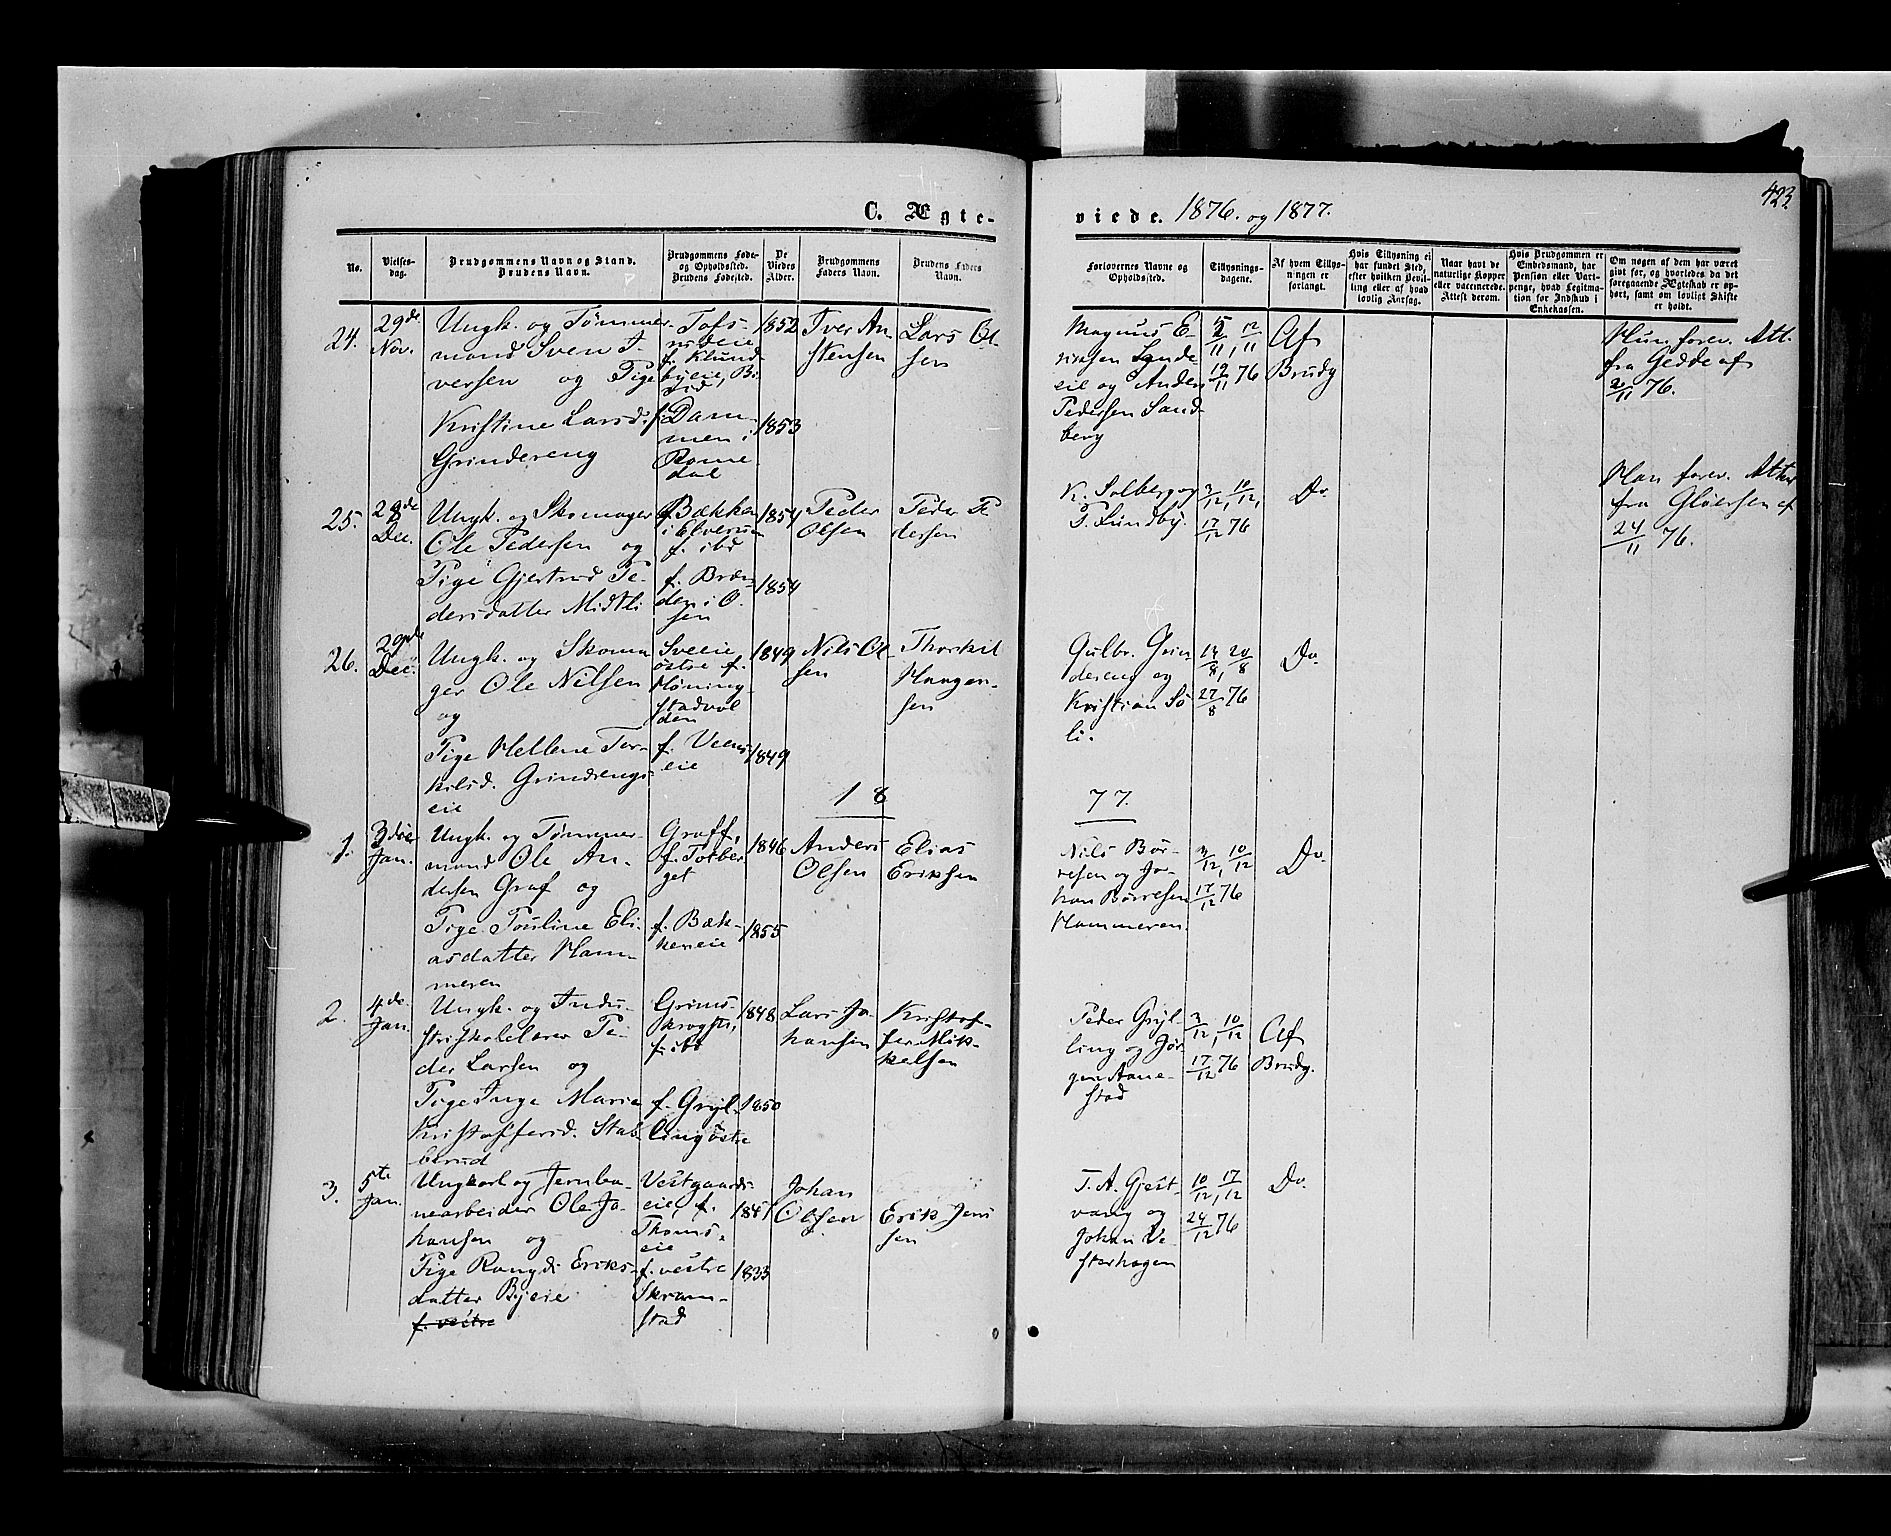 423
C. Ægte-
viede. 1876. og 1877.
No.
Vielses-
dag.
Brudgommens Navn og Stand.
Brudens Navn.
Brudgommens Føde-
og Opholdssted.
Brudens Fødested.
De
Viedes
Alder.
Brudgommens
Faders Navn.
Brudens Faders
Navn.
Forlovernes Navne og
Opholdssted.
Tillysnings-
dagene.
Af hvem Tillys-
ningen er
forlangt.
Hvis Tillysning ei
har fundet Sted,
efter hvilken Bevil-
ling eller af hvad
lovlig Aarsag.
Naar havt de
naturlige Kopper
eller vaccinerede.
Attest derom.
Hvis Brudgommen er
Embedsmand, har
Pension eller Vart-
penge, hvad Legitima-
tion for Indskud i
Enkekassen.
Om nogen af dem har været
givt før, og hvorledes da det
foregaaende Ægteskab er op-
hørt, samt om lovligt Skifte
er holdt.
24.
29de
Nov.
Ungk. og Tømmer-
mand Sven I-
versen og Pige
Kristine Larsd.
Grindereng
Tofs-
rudeie
f. Klund
byeie, Bi
rid
f. Dam-
men i
Rome
dal
1852
1853
Iver An
stensen
Lars Ol
sen
Magnus E-
riksen Sande
eie og Anders
Pedersen Sand
berg
5/11, 12/11
19/11 76
Af
Brudg
Hun forev. Att.
fra Gedde af
2/11 76.
25.
28de
Dec.
Ungk. og Skomager
Ole Pedersen og
Pige Gjertrud Pe-
dersdatter Midtli
Bækken
i Elverum
f. ibd
f. Bræn-
den i O.
sen
1854
1854
Peder
Olsen
Peder Pe
dersen
K. Solberg og
P. Lundby.
3/12, 10/12,
17/12 76
Do.
Han forev. Attest
fra Gløersen af
24/11 76.
26.
29de
Dec.
Ungk. og Skoma
ger Ole Nilsen
og
Pige Hellene Tor-
kilsd. Grindrengs-
eie
Sveeie
østre f.
Høning
stadvol
den
f. Veens
eie
1849
1849
Nils Ol-
sen
Thorkil
Haagen-
sen
Gulbr. Grin-
dereng og
Kristian Sö
li.
14/8, 20/8
27/8 76
Do.
18
77.
1.
3die
Jan.
Ungk. og Tømmer-
mand Ole An-
dersen Graf og
Pige Pouline Eli-
asdatter Ham-
meren
Graff,
f. Torber
get
f. Bæk-
keneie
1846
1855
Anders
Olsen
Elias
Eriksen
Nils Bør-
resen og Jo-
han Børresen
Hammeren.
3/12, 10/12
17/12 76
Do.
2.
4de
Jan.
Ungk. og Indu-
striskolelærer Pe-
der Larsen og
Pige Inge Marie
Kristoffersd. Stab-
berud
Grims-
krogst,
f. ibd
f. Gryl-
ling østre
1848
1850
Lars Jo-
hansen
Kristof-
fer Mik-
kelsen
Peder Gryl-
ling og Jør
gen Aane-
stad
3/12, 10/12
17/12 76
Af
Brudg.
3.
5te
Jan.
Ungkarl og Jernba-
nearbeider Ole Jo-
hansen og
Pige Rangdi Eriks-
datter Byeie
f. vestre
Vestgaards-
eie, f.
Thoms-
eie
f. vestre
Skram-
stad
1851
1833
Johan
Olsen
Erik Jens
sen
T. A. Gjest-
vang og
Johan Ve-
sterhagen
10/12, 17/12
24/12 76
Do.